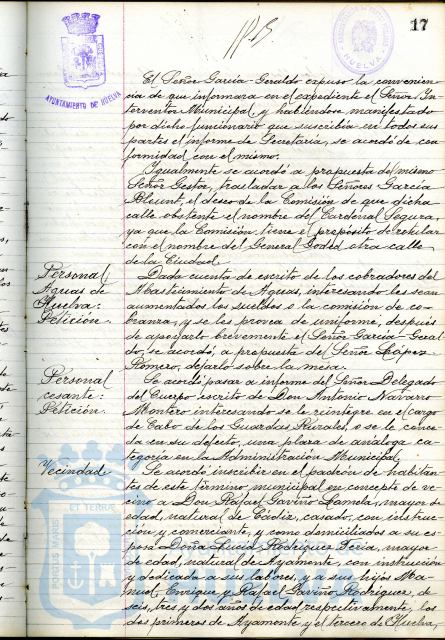 17
AYUNTAMIENTO DE HUELVA
HUELVA
El Señor García-Geraldo expuso la convenien-
cia de que informara en el expediente el Señor In-
terventor Municipal y habiéndose manifestado
por dicho funcionario que suscribía en todas sus
partes el informe de Secretaría, se acordó de con-
formidad con el mismo.
Igualmente se acordó a propuesta del mismo
Señor Gestor, trasladar a los Señores García
el deseo de la Comisión de que dicha
calle obstente el nombre del Cardenal Segura,
ya que la Comisión tiene el propósito de rotular
con el nombre del General Goded otra calle
de la Ciudad.
Personal
Aguas de
Huelva:
Petición.
Dada cuenta de escrito de los cobradores del
Abastecimiento de Aguas, interesando les sean
aumentados los sueldos o la comisión de co-
branza, y se les provea de uniforme, después
de apoyarlo brevemente el Señor García-Geral-
do, se acordó a propuesta del Señor López
Romero, dejarlo sobre la mesa.
Personal
cesante:
Petición.
Se acordó pasar a informe del Señor Delegado
del Cuerpo escrito de Don Antonio Navarro
Montero interesando se le reintegre en el cargo
de Cabo de los Guardas Rurales, o se le conce-
da en su defecto, una plaza de análoga ca-
tegoría en la Administración Municipal.
Vecindad
Se acordó inscribir en el padrón de habitan-
tes de este término municipal en concepto de ve-
cino a Don Rafael Gaviño Lamela, mayor de
edad, natural de Cádiz, casado, con instruc-
ción y comerciante, y como domiciliados a su es-
posa Doña Lucía Rodríguez Feria, mayor
de edad, natural de Ayamonte, con instrucción
y dedicada a sus labores, y a sus hijos Ma-
nuel, Enrique y Rafael Gaviño Rodríguez, de
seis, tres y dos años de edad respectivamente, los
dos primeros de Ayamonte y el tercero de Huelva,
PORTUS MARIS
ET TERRAE